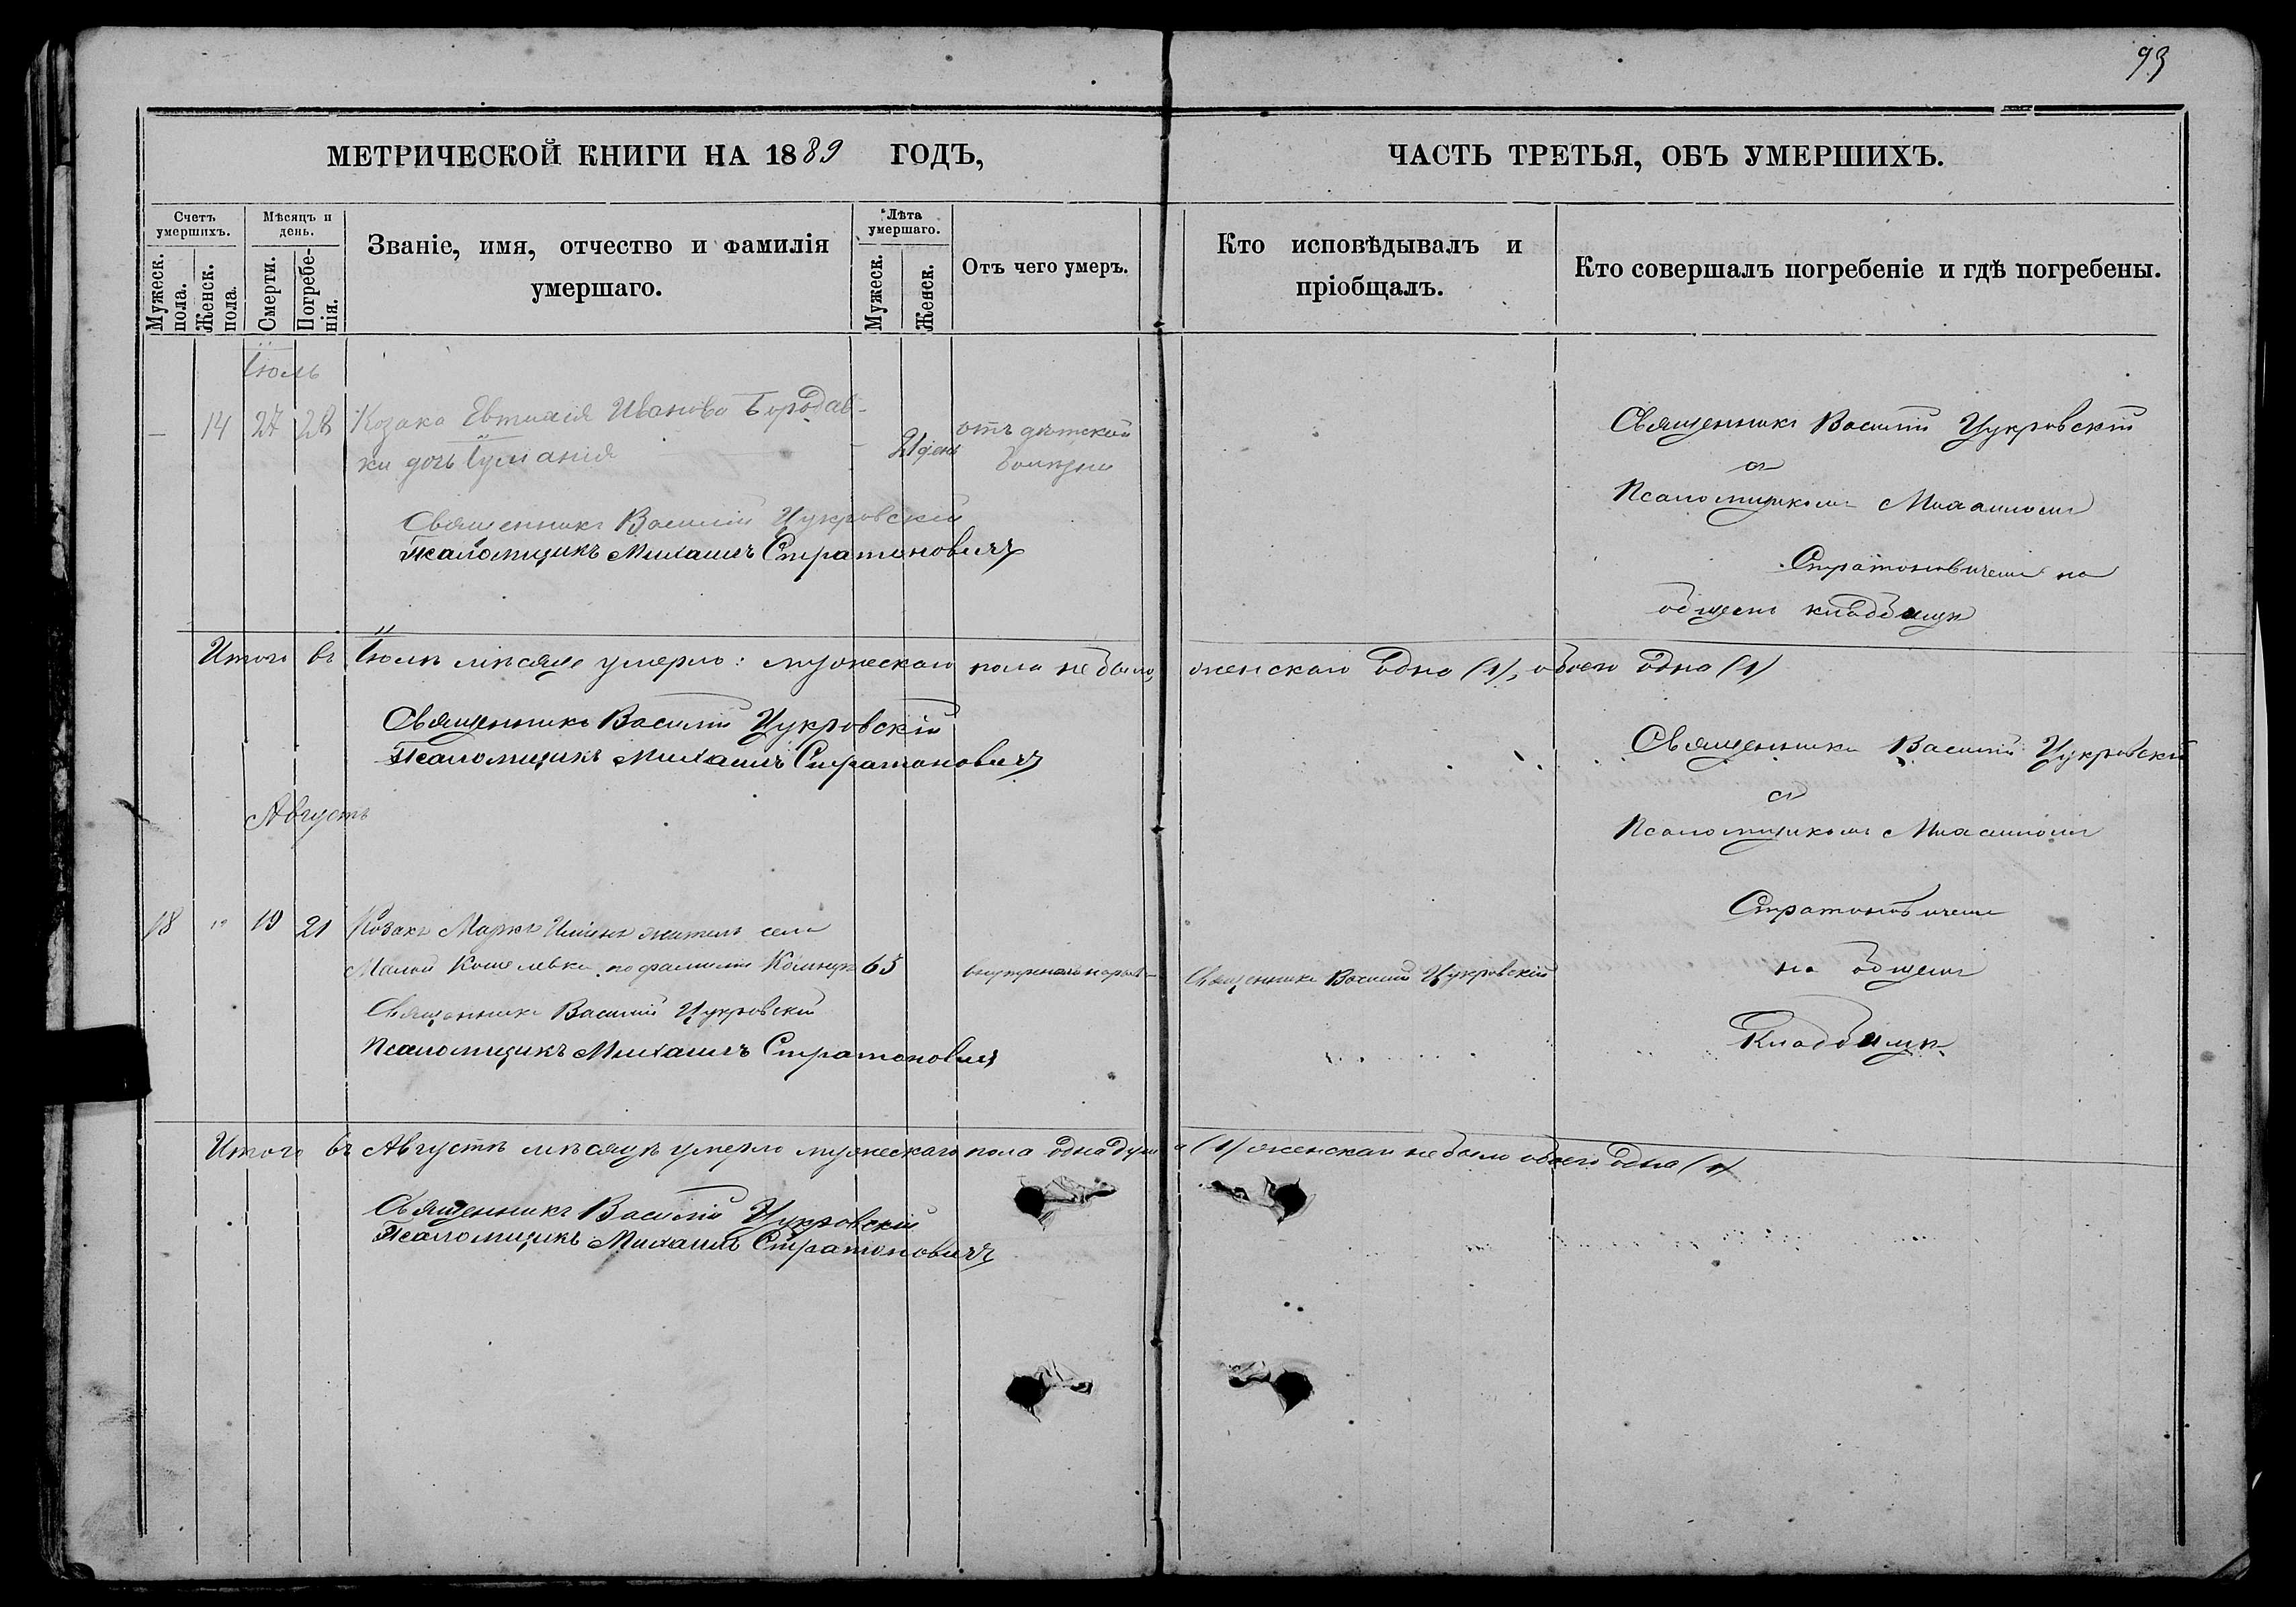 93
МЕТРИЧЕСКОЙ КНИГИ НА 1889 ГОДЪ,
ЧАСТЬ ТРЕТЬЯ, ОБЪ УМЕРШИХЪ.
Счетъ умершихъ.
Мужеск. пола.
Женск. пола.
Мѣсяцъ и день.
Смерти.
Погребе-нія.
Званіе, имя, отчество и фамилія
умершаго.
Лѣта умершаго.
Мужеск.
Женск.
Отъ чего умеръ.
Кто исповѣдывалъ и
пріобщалъ.
Кто совершалъ погребеніе и гдѣ погребены.
Іюль
— 14 27 28 Козака Евтихія Иванова Бородав-
ки дочь Іуліанія — 21 день
отъ дѣтской
болѣзни
Священникъ Василій Цукровскій
Псаломщикъ Михаилъ Стратоновичъ
Священникъ Василій Цукровскій
съ
Псаломщикомъ Михаиломъ
Стратоновичемъ на
общемъ кладбищѣ
Итого въ Іюлѣ мѣсяцѣ умерло: мужескаго пола не было, женскаго одна (1), обоего одна (1)
Священникъ Василій Цукровскій
Псаломщикъ Михаилъ Стратоновичъ
Августъ
18 " 19 21 Козакъ Маркъ житель села
Малой Кошелевки по фамиліи 65
Священникъ Василій Цукровскій
Священникъ Василій Цукровскій
Псаломщикъ Михаилъ Стратоновичъ
Священникъ Василій Цукровскій
съ
Псаломщикомъ Михаиломъ
Стратоновичемъ
на общемъ
Кладбищѣ
Итого въ Августѣ мѣсяцѣ умерло мужескаго пола одна душа (1) женскаго не было обоего одна (1)
Священникъ Василій Цукровскій
Псаломщикъ Михаилъ Стратоновичъ